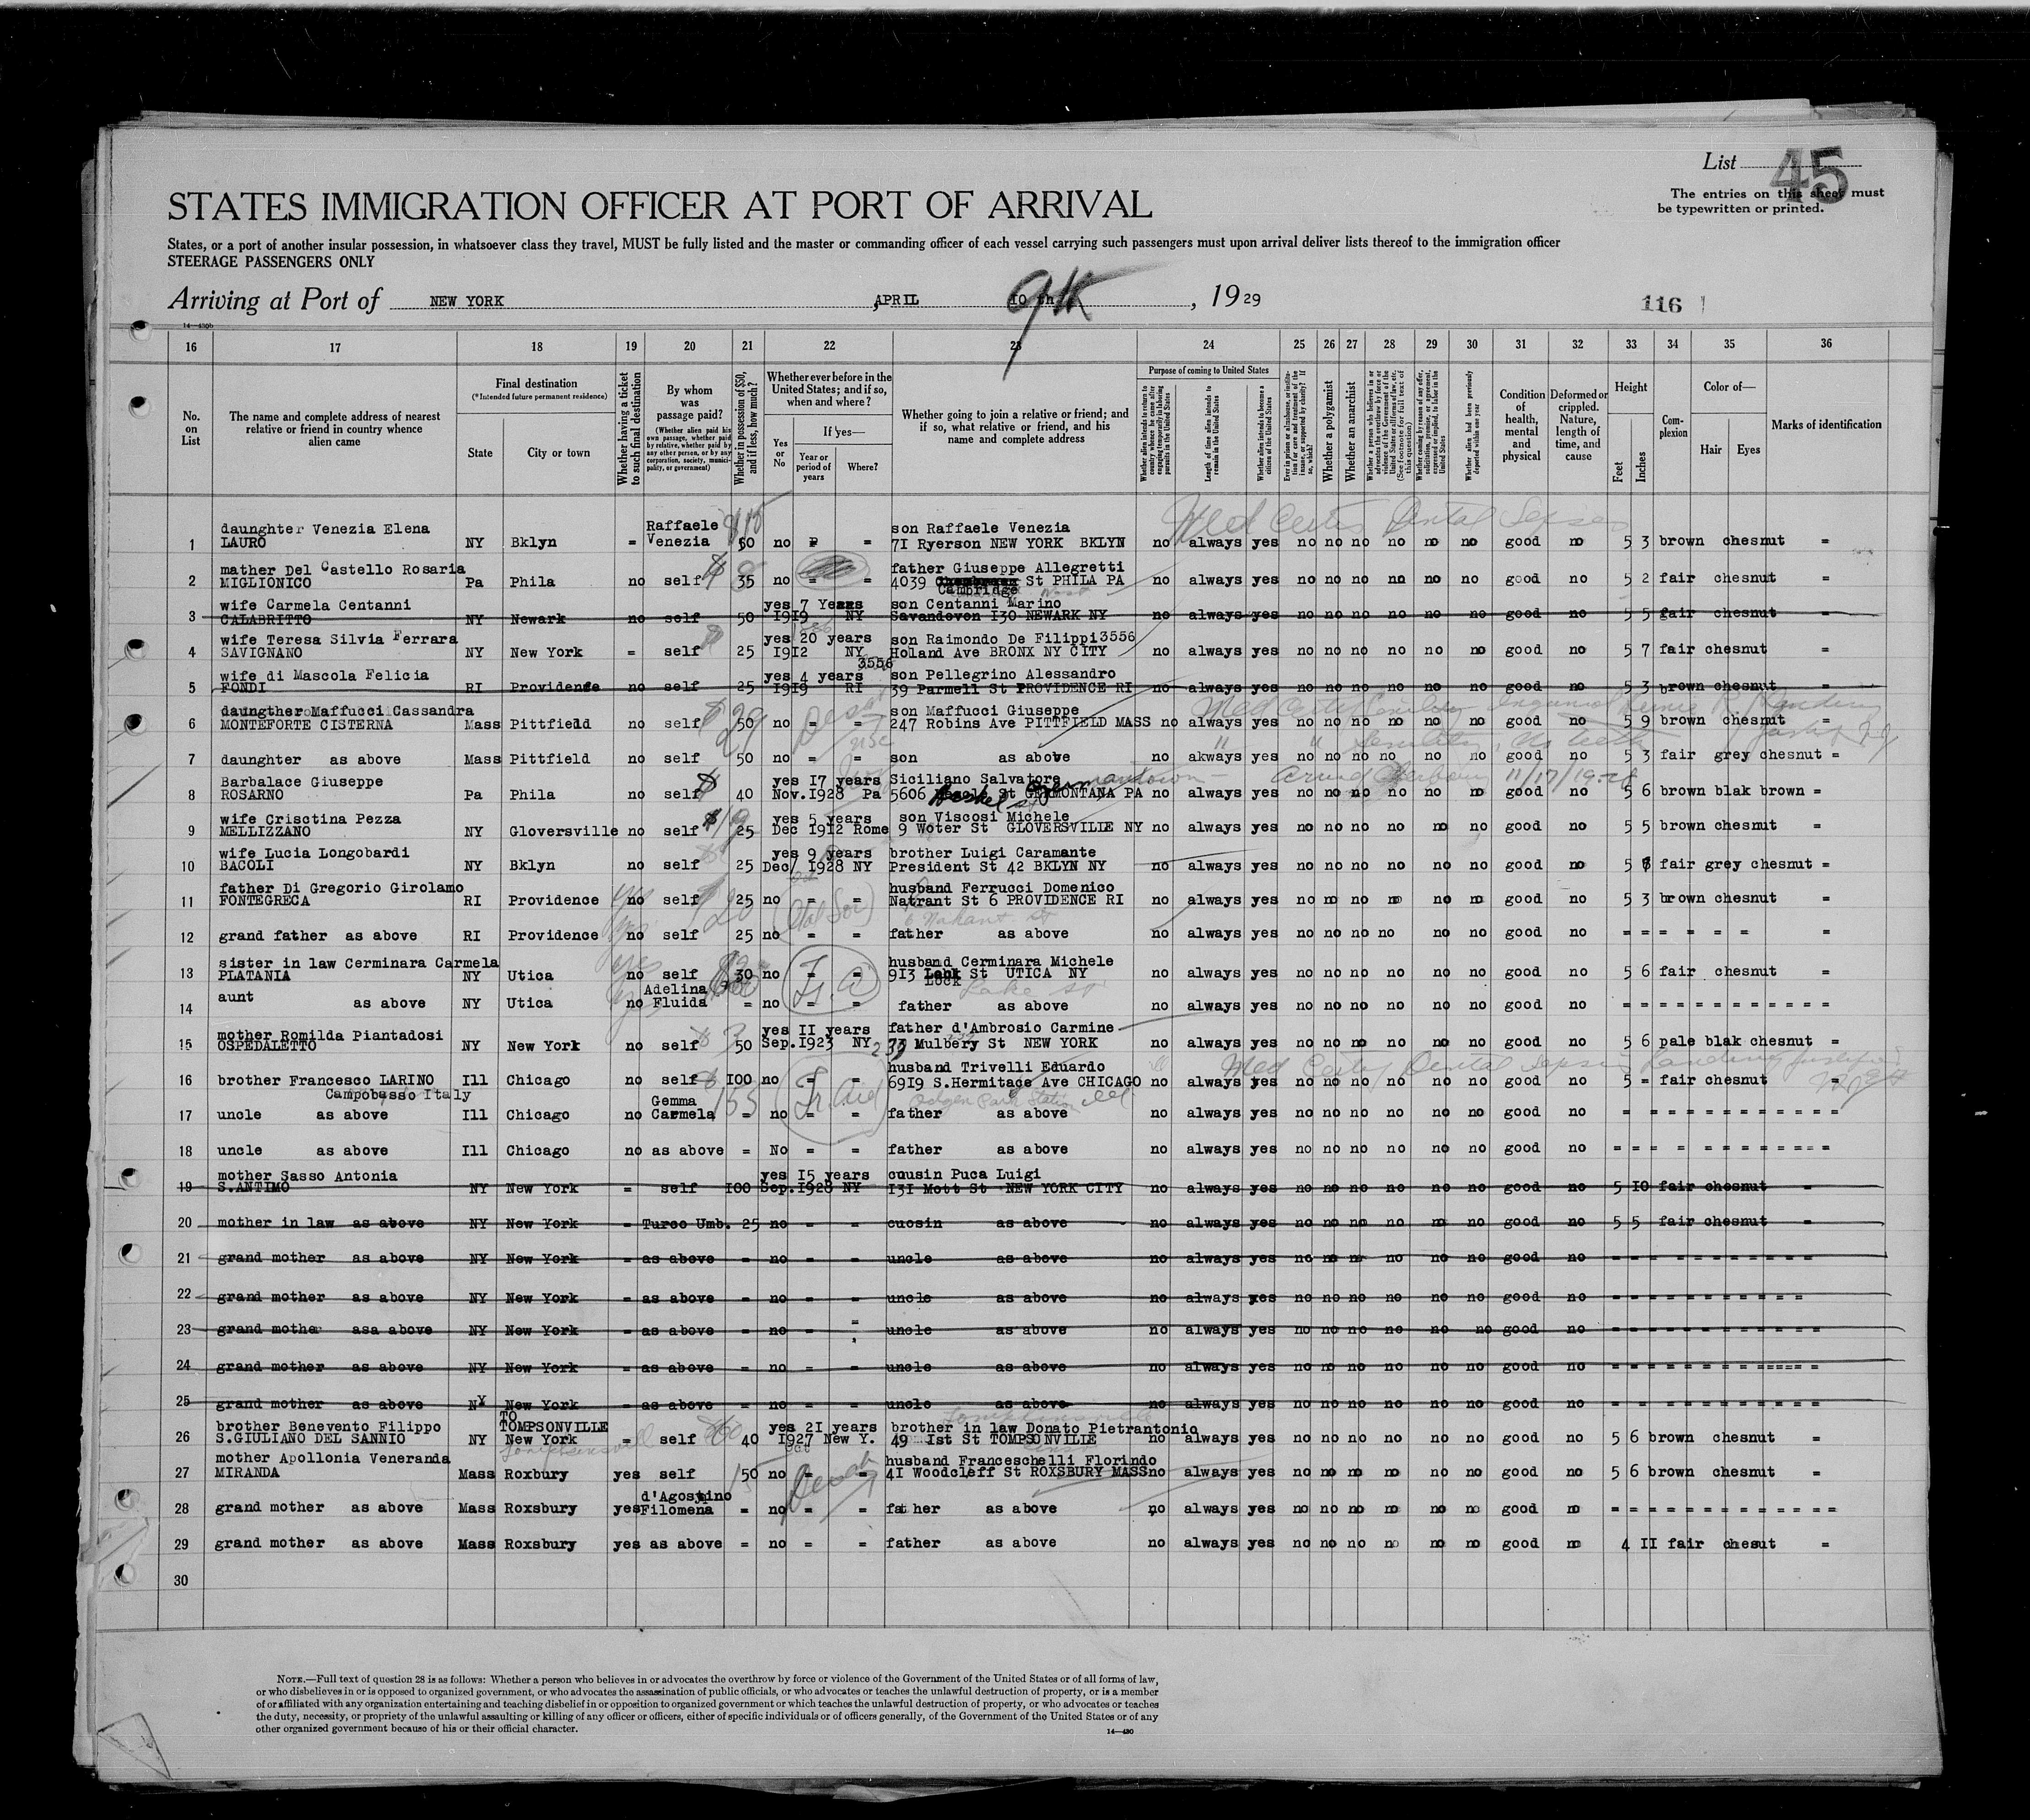 List 45
The entries on this sheet must
be typewritten or printed.
STATES IMMIGRATION OFFICER AT PORT OF ARRIVAL
States, or a port of another insular possession, in whatsoever class they travel, MUST be fully listed and the master or commanding officer of each vessel carrying such passengers must upon arrival deliver lists thereof to the immigration officer
STEERAGE PASSENGERS ONLY
Arriving at Port of NEW YORK, APRIL 10 th 9th, 1929
116
14—430b
16 17 18 19 20 21 22 23 24 25 26 27 28 29 30 31 32 33 34 35 36
No. on List
The name and complete address of nearest relative or friend in country whence alien came
Final destination
(*Intended future permanent residence)
State
City or town
Whether having a ticket to such final destination
By whom was passage paid?
(Whether alien paid his own passage, whether paid by relative, whether paid by any other person, or by any corporation, society, municipality, or government)
Whether in possession of $50, and if less, how much?
Whether ever before in the United States; and if so, when and where?
Yes or No
If yes—
Year or period of years
Where?
Whether going to join a relative or friend; and if so, what relative or friend, and his name and complete address
Purpose of coming to United States
Whether alien intends to return to country whence he came after engaging temporarily in laboring pursuits in the United States
Length of time alien intends to remain in the United States
Whether alien intends to become a citizen of the United States
Ever in prison or almshouse, or institution for care and treatment of the insane, or supported by charity? If so, which?
Whether a polygamist
Whether an anarchist
Whether a person who believes in or advocates the overthrow by force or violence of the Government of the United States or all forms of law, etc. (See footnote for full text of this question)
Whether coming by reason of any offer, solicitation, promise, or agreement, expressed or implied, to labor in the United States
Whether alien had been previously deported within one year
Condition of health, mental and physical
Deformed or crippled. Nature, length of time, and cause
Height
Feet
Inches
Complexion
Color of—
Hair
Eyes
Marks of identification
Med Certif Dental Sepsis
daunghter Venezia Elena Raffaele son Raffaele Venezia
1 LAURO NY Bklyn = Venezia 50 no = = 71 Ryerson NEW YORK BKLYN no always yes no no no no no no good no 5 3 brown chesnut =
mather Del Castello Rosaria father Giuseppe Allegretti
2 MIGLIONICO Pa Phila no self 35 no = = 4039 St PHILA PA no always yes no no no no no no good no 5 2 fair chesnut =
Cambridge
wife Carmela Centanni yes 7 Years son Centanni Marino
3 CALABRITTO NY Newark no self 50 1919 NY Savandoven 130 NEWARK NY no always yes no no no no no no good no 5 5 fair chesnut =
wife Teresa Silvia Ferrara yes 20 years son Raimondo De Filippi 3556
4 SAVIGNANO NY New York = self 25 1912 NY Holand Ave BRONX NY CITY no always yes no no no no no no good no 5 7 fair chesnut =
3556
wife di Mascola Felicia yes 4 years son Pellegrino Alessandro
5 FONDI RI Providense no self 25 1919 RI 39 Parmell St PROVIDENCE RI no always yes no no no no no no good no 5 3 brown chesnut =
daungther Maffucci Cassandra son Maffucci Giuseppe
6 MONTEFORTE CISTERNA Mass Pittfield no self 50 no = = 247 Robins Ave PITTFIELD MASS no always yes no no no no no no good no 5 9 brown chesnut =
7 daunghter as above Mass Pittfield no self 50 no = = son as above no akways yes no no no no no no good no 5 3 fair grey chesnut =
Senility, no teeth
Barbalace Giuseppe yes 17 years Siciliano Salvatore
8 ROSARNO Pa Phila no self 40 Nov.1928 Pa 5606 St GERMONTANA PA no always yes no no no no no no good no 5 6 brown blak brown =
11/17/1928
wife Crisctina Pezza yes 5 years son Viscosi Michele
9 MELLIZZANO NY Gloversville no self 25 Dec 1912 Rome 9 Woter St GLOVERSVILIE NY no always yes no no no no no no good no 5 5 brown chesnut =
wife Lucia Longobardi yes 9 years brother Luigi Caramante
10 BACOLI NY Bklyn no self 25 Dec/ 1928 NY President St 42 BKLYN NY no always yes no no no no no no good no 5 fair grey chesnut =
father Di Gregorio Girolamo husband Ferrucci Domenico
11 FONTEGRECA RI Providence no self 25 no = = Natrant St 6 PROVIDENCE RI no always yes no no no no no no good no 5 3 brown chesnut =
6 Nahant St
12 grand father as above RI Providence no self 25 no = = father as above no always yes no no no no no no good no = = = = = = =
sister in law Cerminara Carmela husband Cerminara Michele
13 PLATANIA NY Utica no self 30 no = = 913 St UTICA NY no always yes no no no no no no good no 5 6 fair chesnut =
Lock
Lake St
aunt Adelina
14 as above NY Utica no Fluida = no = = father as above no always yes no no no no no no good no = = = = = = = = = = = =
mother Romilda Piantadosi yes 11 years father d'Ambrosio Carmine
15 OSPEDALETTO NY New York no self 50 Sep.1923 NY Mulbery St NEW YORK no always yes no no no no no no good no 5 6 pale blak chesnut =
Med Certif Dental Sepsis
husband Trivelli Eduardo
16 brother Francesco LARINO Ill Chicago no self 100 no = = 6919 S.Hermitage Ave CHICAGO no always yes no no no no no no good no 5 = fair chesnut =
Campobasso Italy Gemma Ogden Park Station Ill
17 uncle as above Ill Chicago no Carmela = no = = father as above no always yes no no no no no no good no = = = = = = = = = = = =
18 uncle as above Ill Chicago no as above = No = = father as above no always yes no no no no no no good no = = = = = = = = = = = =
mother Sasso Antonia yes 15 years cousin Puca Luigi
19 S.ANTIMO NY New York = self 100 Sep.1928 NY 131 Mott St NEW YORK CITY no always yes no no no no no no good no 5 10 fair chesnut =
20 mother in law as above NY New York = Turco Umb. 25 no = = cuosin as above no always yes no no no no no no good no 5 5 fair chesnut =
21 grand mother as above NY New York = as above = no = = uncle as above no always yes no no no no no no good no = = = = = = = = = = =
22 grand mother as above NY New York = as above = no = = uncle as above no always yes no no no no no no good no = = = = = = = = = = =
23 grand mothe asa above NY New York = as above = no = = uncle as above no always yes no no no no no no good no = = = = = = = = = = =
24 grand mother as above NY New York = as above = no = = uncle as above no always yes no no no no no no good no = = = = = = = = = = =
25 grand mother as above NY New York = as above = no = = uncle as above no always yes no no no no no no good no = = = = = = = = = = =
TO Tomplinsville
brother Benevento Filippo TOMPSONVILLE yes 21 years brother in law Donato Pietrantonio
26 S.GIULIANO DEL SANNIO NY New York = self 40 1927 New Y. 49 Ist St TOMPSONVILLE no always yes no no no no no no good no 5 6 brown chesnut =
mother Apollonia Veneranda husband Franceschelli Florindo
27 MIRANDA Mass Roxbury yes self 50 no = = 41 Woodcleff St ROXSBURY MASS no always yes no no no no no no good no 5 6 brown chesnut =
d'Agostino
28 grand mother as above Mass Roxsbury yes Filomena = no = = father as above no always yes no no no no no no good no = = = = = = = = = = = =
29 grand mother as above Mass Roxsbury yes as above = no = = father as above no always yes no no no no no no good no 4 11 fair chesut =
30
NOTE.—Full text of question 28 is as follows: Whether a person who believes in or advocates the overthrow by force or violence of the Government of the United States or of all forms of law,
or who disbelieves in or is opposed to organized government, or who advocates the assassination of public officials, or who advocates or teaches the unlawful destruction of property, or is a member
of or affiliated with any organization entertaining and teaching disbelief in or opposition to organized government or which teaches the unlawful destruction of property, or who advocates or teaches
the duty, necessity, or propriety of the unlawful assaulting or killing of any officer or officers, either of specific individuals or of officers generally, of the Government of the United States or of any
other organized government because of his or their official character.
14—430